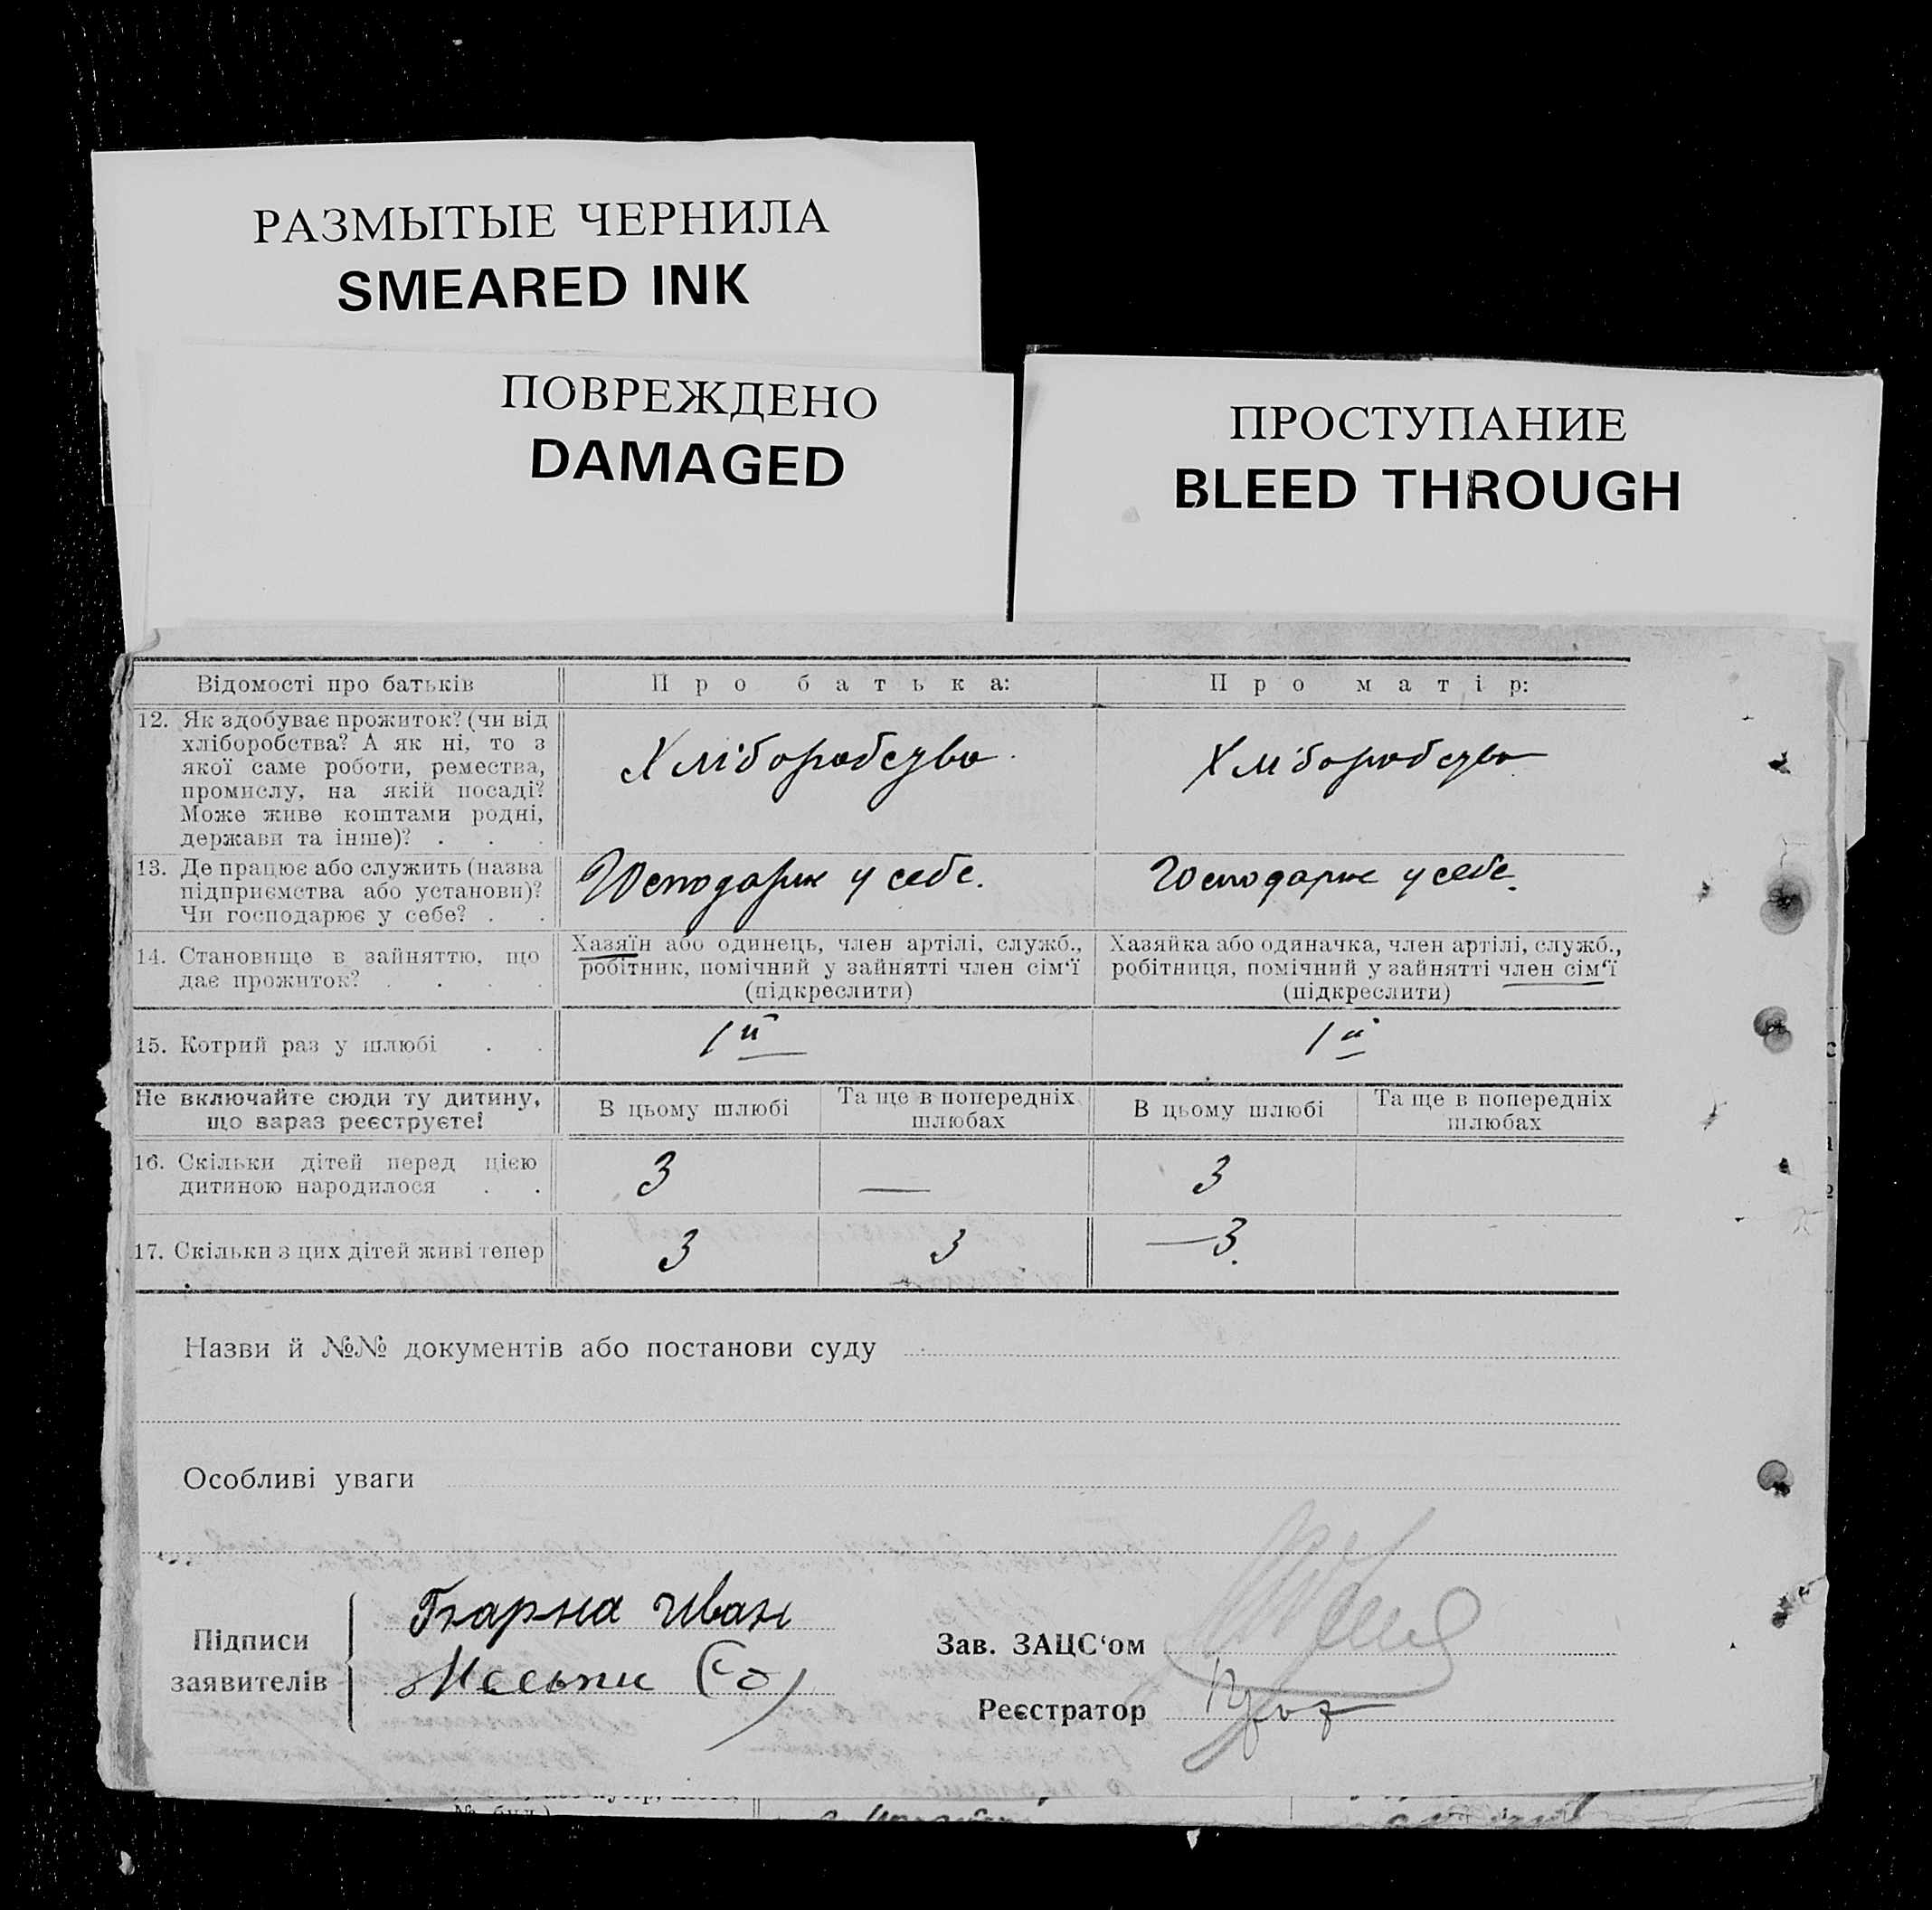 РАЗМЫТЫЕ ЧЕРНИЛА
SMEARED INK
ПОВРЕЖДЕНО
DAMAGED
ПРОСТУПАНИЕ
BLEED THROUGH
Відомості про батьків
Про батька:
Про матір:
12. Як здобуває прожиток? (чи від
хліборобства? А як ні, то з
якої саме роботи, ремества,
промислу, на якій посаді?
Може живе коштами родні,
держави та інше)? . . .
Хліборобство
Хліборобство
13. Де працює або служить (назва
підприємства або установи)?
Чи господарює у себе? . .
Господарює у себе.
Господарює у себе.
14. Становище в зайняттю, що
дає прожиток? . . . .
Хазяїн або одинець, член артілі, служб.,
робітник, помічний у зайнятті член сім‘ї
(підкреслити)
Хазяйка або одиначка, член артілі, служб.,
робітниця, помічний у зайнятті член сім‘ї
(підкреслити)
15. Котрий раз у шлюбі . .
1й
1й
Не включайте сюди ту дитину,
що зараз реєструєте!
В цьому шлюбі
Та ще в попередніх
шлюбах
В цьому шлюбі
Та ще в попередніх
шлюбах
16. Скільки дітей перед цією
дитиною народилося . .
3
—
3
17. Скільки з цих дітей живі тепер
3
3
—3.
Назви й №№ документів або постанови суду
Особливі уваги
Підписи
заявителів
Иван
Зав. ЗАЦС‘ом
Реєстратор